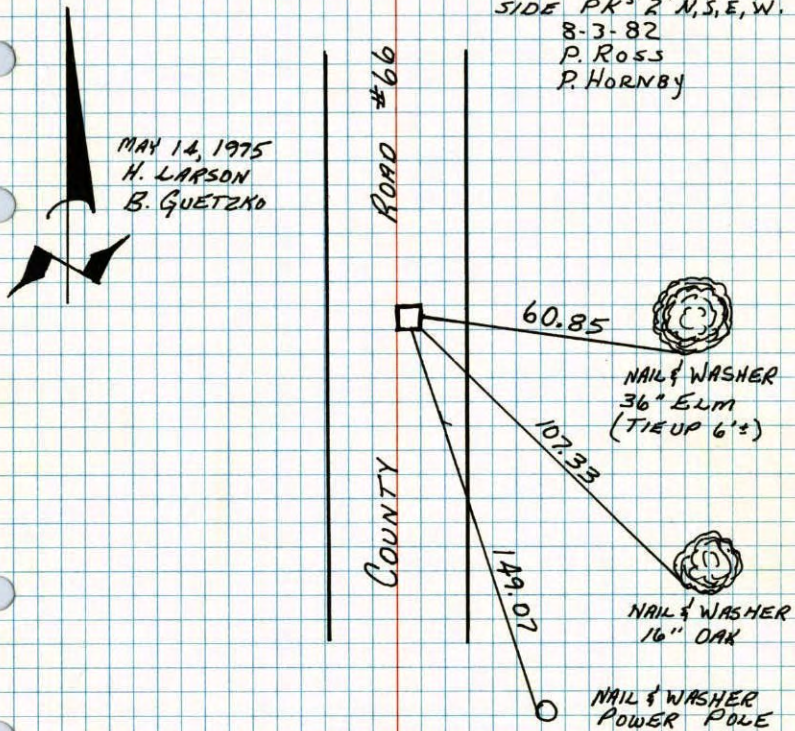 SIDE PK'S 2' N,S,E,W.
8-3-82
P. ROSS
P. HORNBY
MAY 14, 1975
H. LARSON
B. GUETZKO
COUNTY ROAD #66
60.85
NAIL & WASHER
36" ELM
(TIE UP 6'±)
107.33
NAIL & WASHER
16" OAK
149.07
NAIL & WASHER
POWER POLE